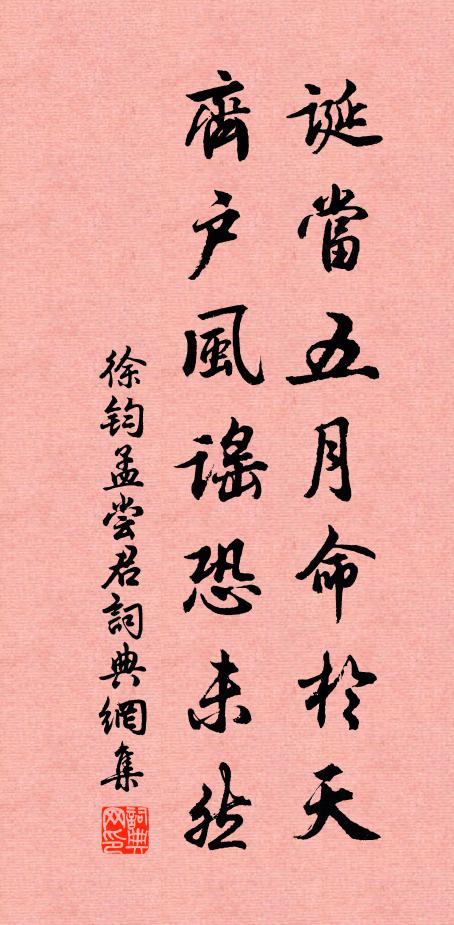 誕當五月命於天
齊戶風謠恐未然
徐鈞孟嘗君詞典網集
詞典
网印